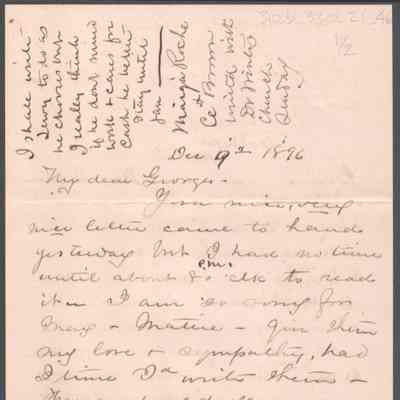 I shall write
Dewy to do as
he chooses but
I really think
if he dont mind
work & cares for
Cash he better
stay until
Jan
Margie Roche
& Ct Brown
united with
Dr
Church
Sunday
1/2
Dec 9th 1896
My dear George.
Your nice, very
nice letter came to hand
yesterday but I had no time
until about 8 o'clk p.m. to read
it. I am so sorry for
May & Mattie - Give them
my love & sympathy, had
I time I'd write them -